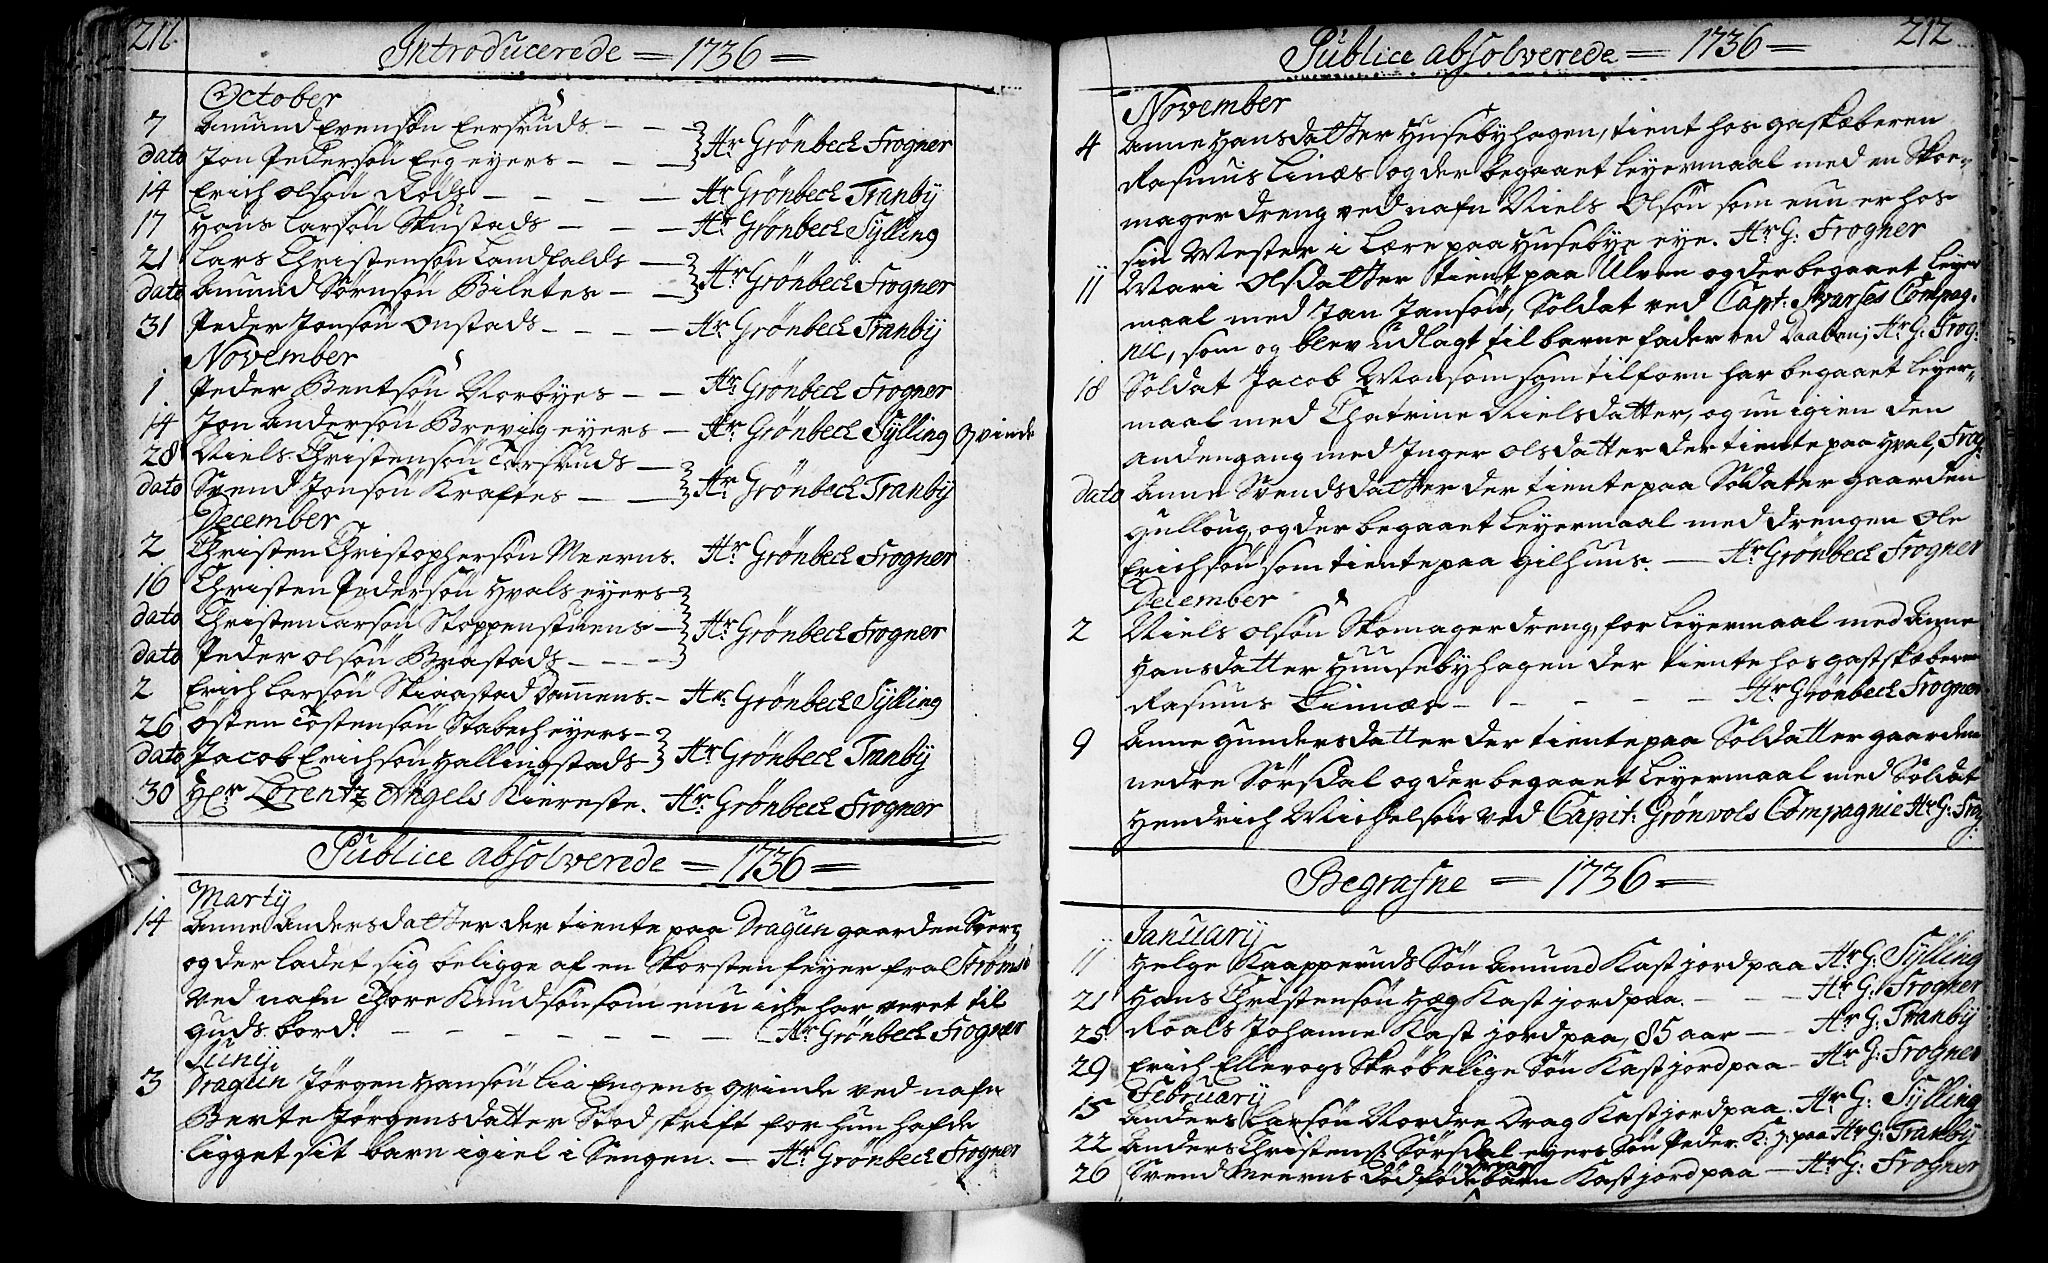 211.
Introducerede = 1736 =
October
7 Amund Evensøn Eersruds - - Hr Grønbech Frogner
dato Jon Pedersøn Eeg eyers - - -
14 Erich Olsøn - - - - Hr Grønbech Tranby
17 Hans Larsøn Skustads - - - Hr Grønbech Sylling
21 Lars Christensøn Landfalds - Hr Grønbech Frogner
dato Amund Sørnsøn Biletes - -
31 Peder Jonsøn Onstads - - - - Hr Grønbech Tranby
November
1 Peder Bentsøn Norbyes - - Hr Grønbech Frogner
14 Jon Andersøn Brevig eyers - Hr Grønbech Sylling Qvinde
28 Niels Christensøn Torsruds - Hr Grønbech Tranby
dato Svend Jonsøn Kraftes - -
December
2 Christen Christophersøn Meerns. Hr Grønbech Frogner
16 Christen Pedersøn Hvals eyers - Hr Grønbech Frogner
dato Christen Larsøn Stoppenstuens -
dato Peder Olsøn Brastads - - - -
2 Erich Larsøn Skiaastad Damens. - Hr Grønbech Sylling
26 Østen Tostensøn Stabech eyers - Hr Grønbech Tranby
dato Jacob Erichsøn Hallingstads -
30 Hr Lorentz Angels Kiereste. Hr Grønbech Frogner
Publice absolverede = 1736 =
Martij
14 Anne Andersdatter der tiente paa Dragun gaarden
og der ladet sig beligge af en Skorsten feyer fra Strømsø
ved nafn Thore Knudsøn som enu iche har veret til
Guds bord. - - - - - - - Hr Grønbech Frogner
Junij
3 Dragun Jørgen Hansøn Lia Engens qvinde ved nafn
Berte Jørgensdatter Stod skrift for hun hafde
ligget sit barn igiel i Sengen. - Hr Grønbech Frogner
212
Publice absolverede = 1736 =
November
4 Anne Hansdatter Husebyhagen, tient hos gaskæberen
Rasmus Linæs og der begaaet Leyermaal med en Skoe-
mager dreng ved nafn Niels Olsøn som enu er hos
sin Mester i Lære paa Husebye eye. Hr G: Frogner
11 Mari Olsdatter tient paa Ulven og der begaaet Leyer
maal med Jan Jansøn, Soldat ved Capt: Compag-
nie, som og blev udlagt til barne fader ved Daaben; Hr G: Frog:
18 Soldat Jacob Monsøn som tilforn har begaaet Leyer-
maal med Chatrine Nielsdatter, og nu igien den
andengang med Inger Olsdatter der tiente paa Hval, Frog:
dato Anne Svendsdatter der tiente paa Soldater gaarden
Gulloug, og der begaaet Leyermaal med drengen Ole
Erichsøn som tiente paa Gilhuus. - Hr Grønbech Frogner
December
2 Niels Olsøn Skomager dreng, for Leyermaal med Anne
Hansdatter Huusebyhagen der tiente hos gastskæberen
Rasmus Linnæs - - - - - Hr Grønbech Frogner
9 Anne Gundersdatter der tiente paa Soldatter gaarden
nedre Sørsdal og der begaaet Leyermaal med Soldat
Hendrich Michelsøn ved Capit: Grønvols Compagnie Hr G: Frog.
Begrafne = 1736 =
Januarij
11 Helge Kaapperuds Søn Amund Kast jord paa Hr G: Sylling
21 Hans Christensøn Hæg Kast jord paa. - - - Hr G: Frogner
25 Roals Johanne Kast jord paa, 85 aar - - Hr G: Tranby
29 Erich Ellerogs Skrøbelige Søn Kast jord paa - Hr G: Frogner
Februarij
15 Anders Larsøn Nordre Drag Kast jord paa. Hr G: Sylling
22 Anders Christens: Sørsdal eyers Søn Peder K: j: paa Hr G: Tranby
26 Svend Meerns dødfødt barn Kast jord paa - Hr G: Frogner